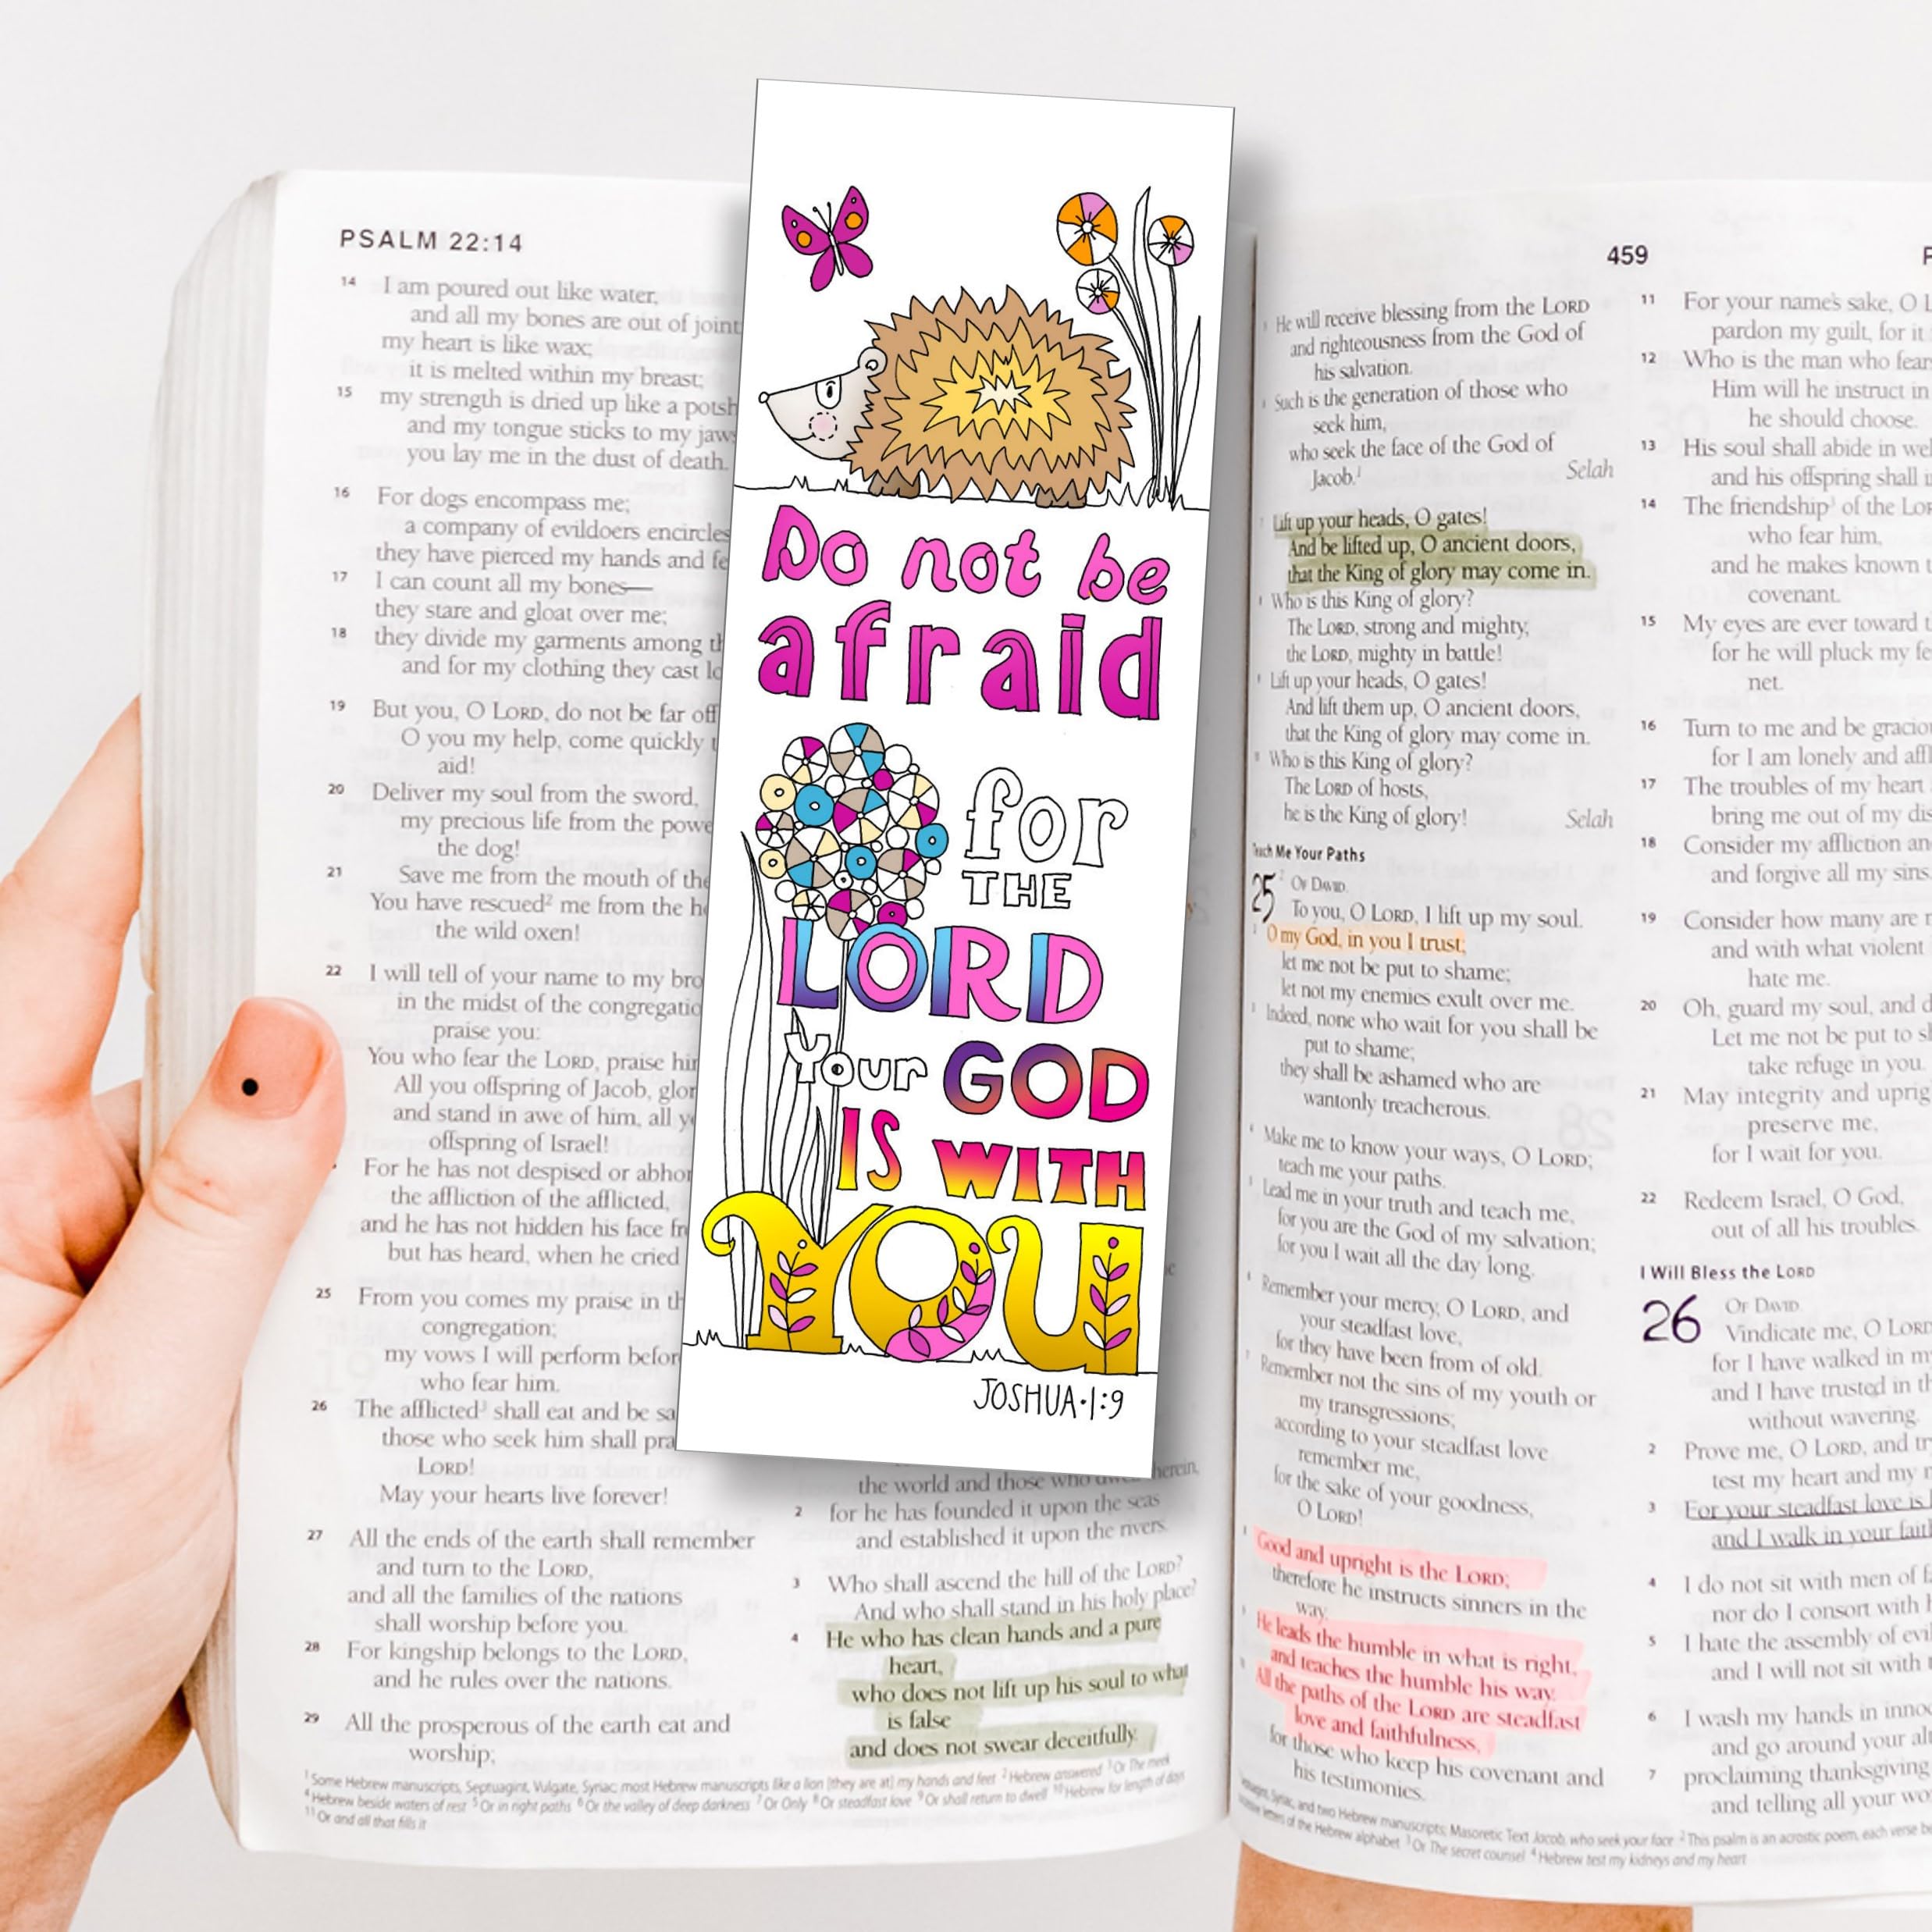 PSALM 22:14
14 I am poured out like water,
and all my bones are out of joint;
my heart is like wax;
it is melted within my breast;
15 my strength is dried up like a potsh
and my tongue sticks to my jaws
you lay me in the dust of death.
16 For dogs encompass me;
a company of evildoers encircles
they have pierced my hands and fe
17 I can count all my bones—
they stare and gloat over me;
18 they divide my garments among th
and for my clothing they cast lo
19 But you, O LORD, do not be far off
O you my help, come quickly t
aid!
20 Deliver my soul from the sword,
my precious life from the powe
the dog!
21 Save me from the mouth of the
You have rescued² me from the ho
the wild oxen!
22 I will tell of your name to my bro
in the midst of the congregatio
praise you:
You who fear the LORD, praise him
All you offspring of Jacob, glor
and stand in awe of him, all yo
offspring of Israel!
For he has not despised or abhor
the affliction of the afflicted,
and he has not hidden his face fr
but has heard, when he cried
25 From you comes my praise in th
congregation;
my vows I will perform before
who fear him.
26 The afflicted³ shall eat and be sa
those who seek him shall pra
LORD!
May your hearts live forever!
27 All the ends of the earth shall remember
and turn to the LORD,
and all the families of the nations
shall worship before you.
28 For kingship belongs to the LORD,
and he rules over the nations.
29 All the prosperous of the earth eat and
worship;
the world and those who dwell therein,
2 for he has founded it upon the seas
and established it upon the rivers.
3 Who shall ascend the hill of the LORD?
And who shall stand in his holy place?
4 He who has clean hands and a pure
heart,
who does not lift up his soul to what
is false
and does not swear deceitfully.
1 Some Hebrew manuscripts, Septuagint, Vulgate, Syriac; most Hebrew manuscripts like a lion [they are at] my hands and feet 2 Hebrew answered 3 Or The meek
4 Hebrew beside waters of rest 5 Or in right paths 6 Or the valley of deep darkness 7 Or Only 8 Or steadfast love 9 Or shall return to dwell 10 Hebrew for length of days
11 Or and all that fills it
Do not be
afraid
for
THE
LORD
Your GOD
IS WITH
YOU
JOSHUA·1:9
459
He will receive blessing from the LORD
and righteousness from the God of
his salvation.
Such is the generation of those who
seek him,
who seek the face of the God of
Jacob.¹ Selah
Lift up your heads, O gates!
And be lifted up, O ancient doors,
that the King of glory may come in.
Who is this King of glory?
The LORD, strong and mighty,
the LORD, mighty in battle!
Lift up your heads, O gates!
And lift them up, O ancient doors,
that the King of glory may come in.
Who is this King of glory?
The LORD of hosts,
he is the King of glory! Selah
Teach Me Your Paths
25 ² OF DAVID.
To you, O LORD, I lift up my soul.
O my God, in you I trust;
let me not be put to shame;
let not my enemies exult over me.
Indeed, none who wait for you shall be
put to shame;
they shall be ashamed who are
wantonly treacherous.
Make me to know your ways, O LORD;
teach me your paths.
Lead me in your truth and teach me,
for you are the God of my salvation;
for you I wait all the day long.
Remember your mercy, O LORD, and
your steadfast love,
for they have been from of old.
Remember not the sins of my youth or
my transgressions;
according to your steadfast love
remember me,
for the sake of your goodness,
O LORD!
Good and upright is the LORD;
therefore he instructs sinners in the
way.
He leads the humble in what is right,
and teaches the humble his way.
All the paths of the LORD are steadfast
love and faithfulness,
for those who keep his covenant and
his testimonies.
11 For your name's sake, O L
pardon my guilt, for it
12 Who is the man who fear
Him will he instruct in
he should choose.
13 His soul shall abide in wel
and his offspring shall
14 The friendship³ of the Lor
who fear him,
and he makes known t
covenant.
15 My eyes are ever toward t
for he will pluck my fe
net.
16 Turn to me and be gracio
for I am lonely and affl
17 The troubles of my heart
bring me out of my dis
18 Consider my affliction an
and forgive all my sins.
19 Consider how many are
and with what violent
hate me.
20 Oh, guard my soul, and d
Let me not be put to sh
take refuge in you.
21 May integrity and uprig
preserve me,
for I wait for you.
22 Redeem Israel, O God,
out of all his troubles.
I Will Bless the LORD
26 OF DAVID.
Vindicate me, O LORD
for I have walked in m
and I have trusted in th
without wavering.
2 Prove me, O LORD, and tr
test my heart and my
3 For your steadfast love is
and I walk in your fait
4 I do not sit with men of fa
nor do I consort with h
5 I hate the assembly of evil
and I will not sit with
6 I wash my hands in inno
and go around your alt
7 proclaiming thanksgiving
and telling all your wo
Syriac, and two Hebrew manuscripts; Masoretic Text Jacob, who seek your face 2 This psalm is an acrostic poem, each verse be
letters of the Hebrew alphabet 3 Or The secret counsel 4 Hebrew test my kidneys and my heart